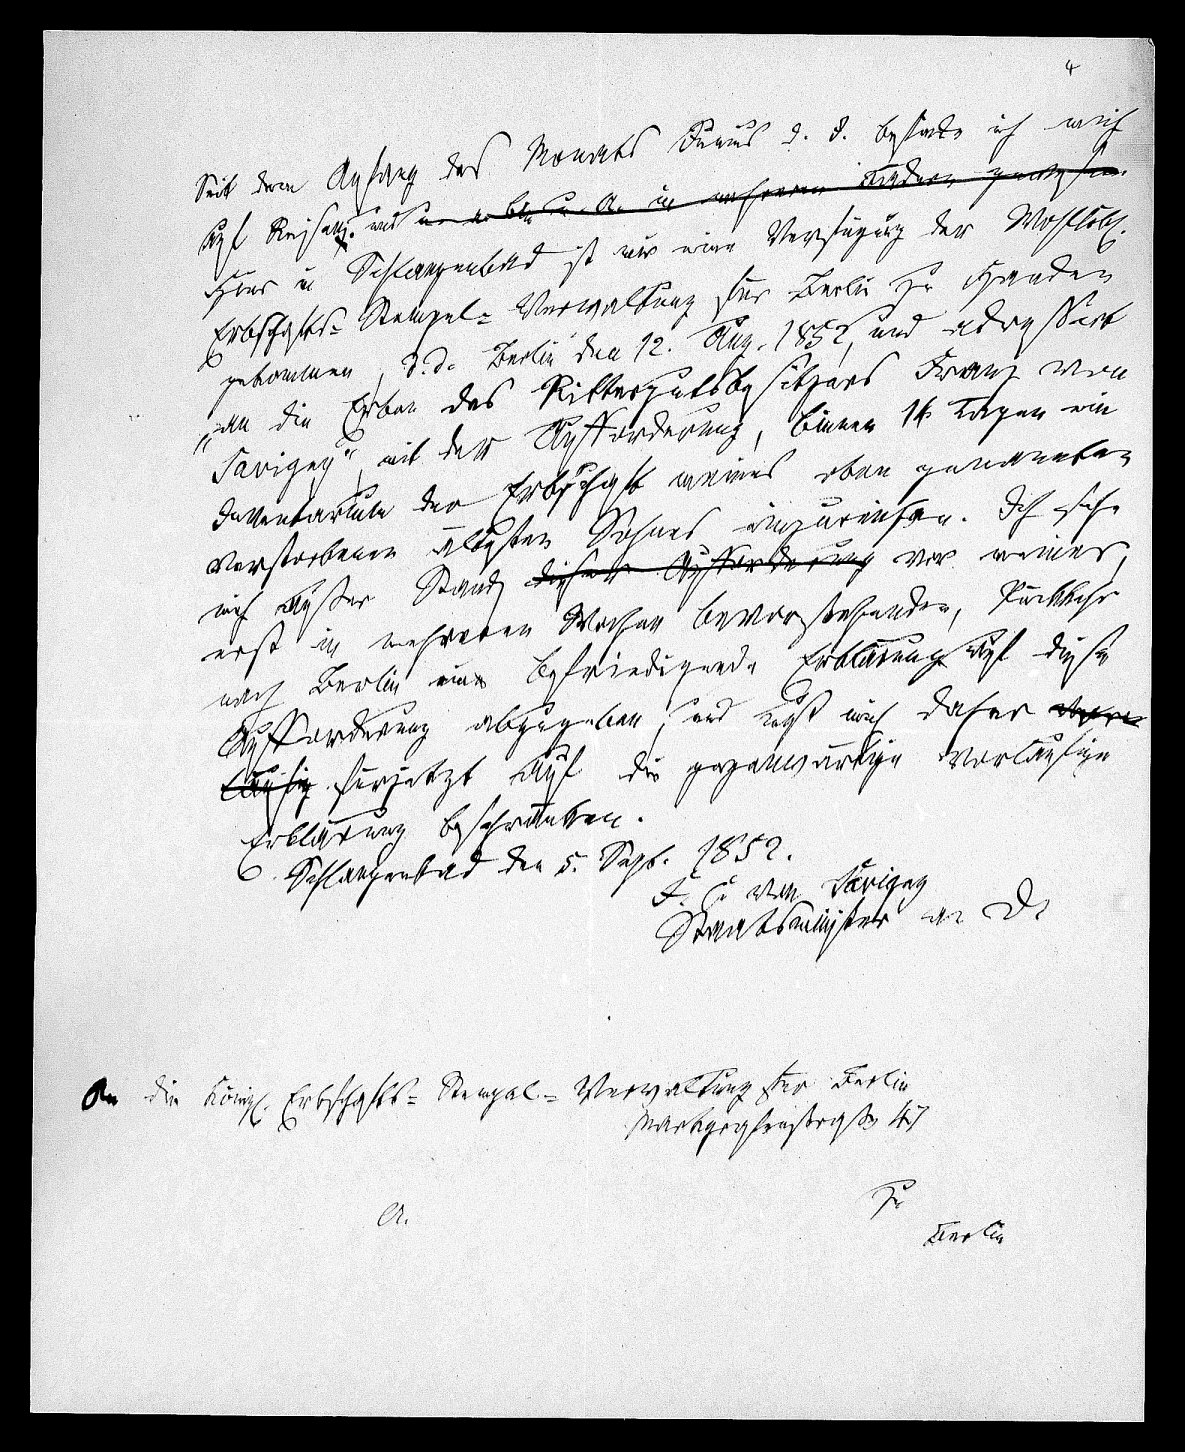 4
Seit dem Anfang des Monats Junius d. J. befinde ich mich
auf Reisen, und
Hier in Schlangenbad ist mir eine Verfügung der Wohllöbl.
Erbschafts= Stempel= Verwaltung für Berlin zu Handen
gekommen, d. d. Berlin den 12. Aug. 1852, und adressirt
"an die Erben des Rittergutsbesitzers Franz von
Savigny", mit der Aufforderung, binnen 14 Tagen ein
Inventarium der Erbschaft meines oben genannten
verstorbenen ältesten Sohnes einzureichen. Ich sehe
mich außer Stand, dieser Aufforderung vor meiner,
erst in mehreren Wochen bevorstehenden, Rückkehr
nach Berlin eine befriedigende Erklärung auf diese
Aufforderung abzugeben, und muß mich daher vor
läufig für jetzt auf die gegenwärtige vorläufige
Erklärung beschränken.
Schlangenbad den 5. Sept. 1852.
F. C. von Savigny
Staatsminister a. D.
An die Königl. Erbschafts= Stempel= Verwaltung für Berlin
Markgrafenstraße 47
zu
Berlin